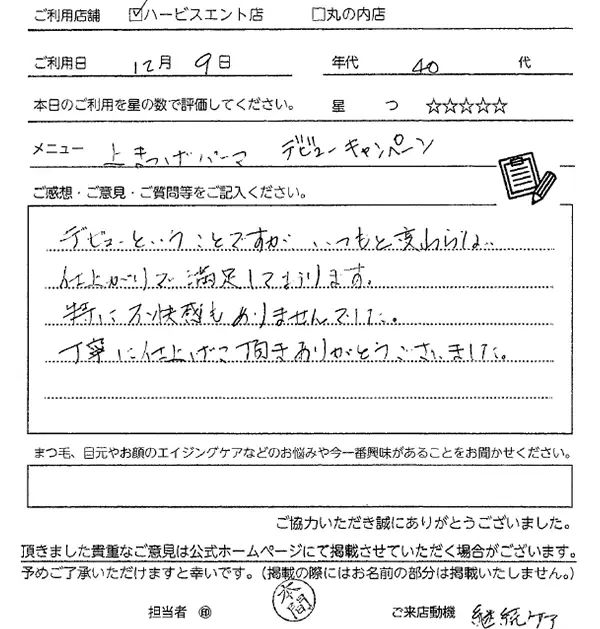 ご利用店舗 ☑ハービスエント店 □丸の内店
ご利用日 12月 9日 年代 40 代
本日のご利用を星の数で評価してください。 星 つ ☆☆☆☆☆
メニュー 上まつげパーマ デビューキャンペーン
ご感想・ご意見・ご質問等をご記入ください。
デビューということですが、いつもと変わらない
仕上がりで満足しております。
特に不快感もありませんでした。
丁寧に仕上げて頂きありがとうございました。
まつ毛、目元やお顔のエイジングケアなどのお悩みや今一番興味があることをお聞かせください。
ご協力いただき誠にありがとうございました。
頂きました貴重なご意見は公式ホームページにて掲載させていただく場合がございます。
予めご了承いただけますと幸いです。(掲載の際にはお名前の部分は掲載いたしません。)
担当者 ㊞ 本間 ご来店動機 継続ケア